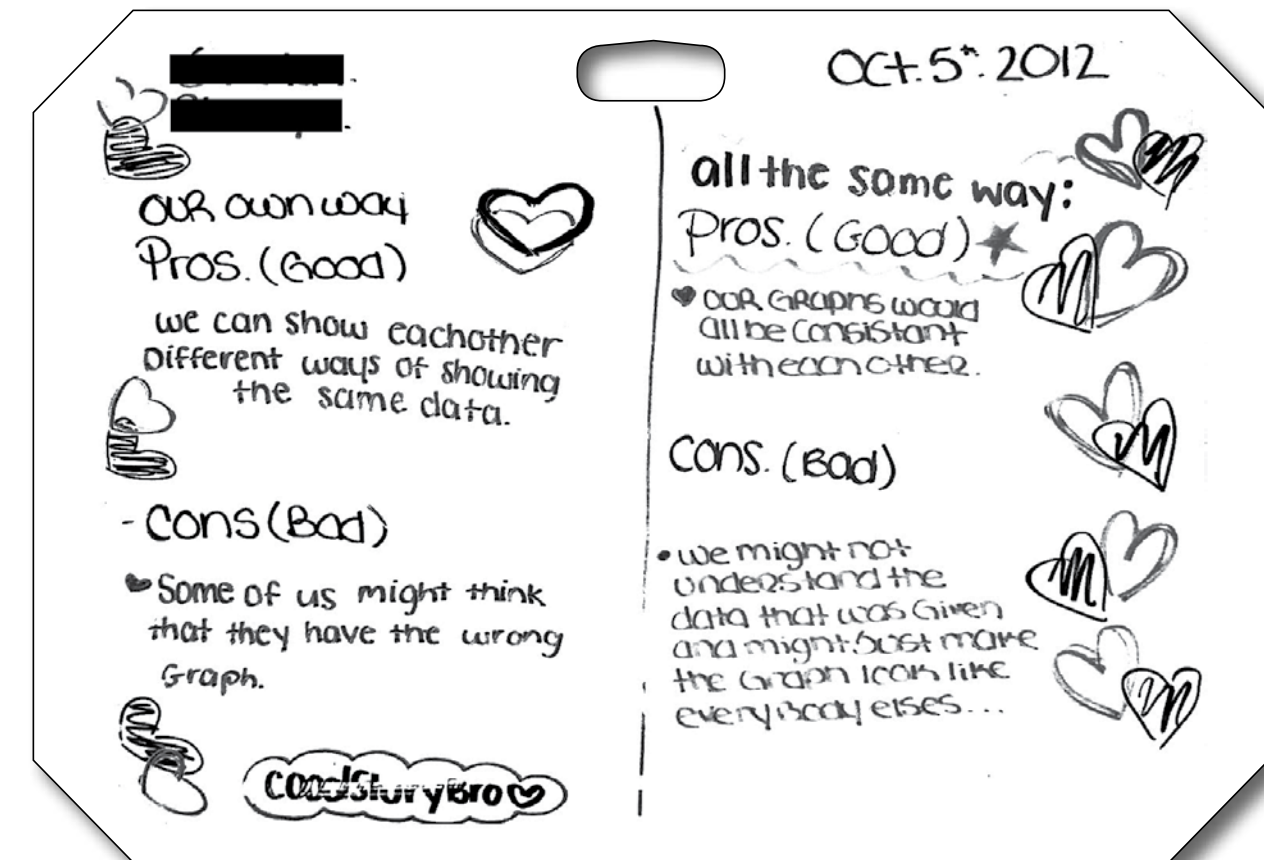 Oct. 5th. 2012
our own way
Pros. (Good)
we can show eachother
Different ways of showing
the same data.
- Cons (Bad)
Some of us might think
that they have the wrong
Graph.
StoryBro
all the same way:
Pros. (Good)
our Graphs would
all be consistant
with each other.
Cons. (Bad)
• we might not
understand the
data that was Given
and might Just make
the Graph look like
everyBody elses...